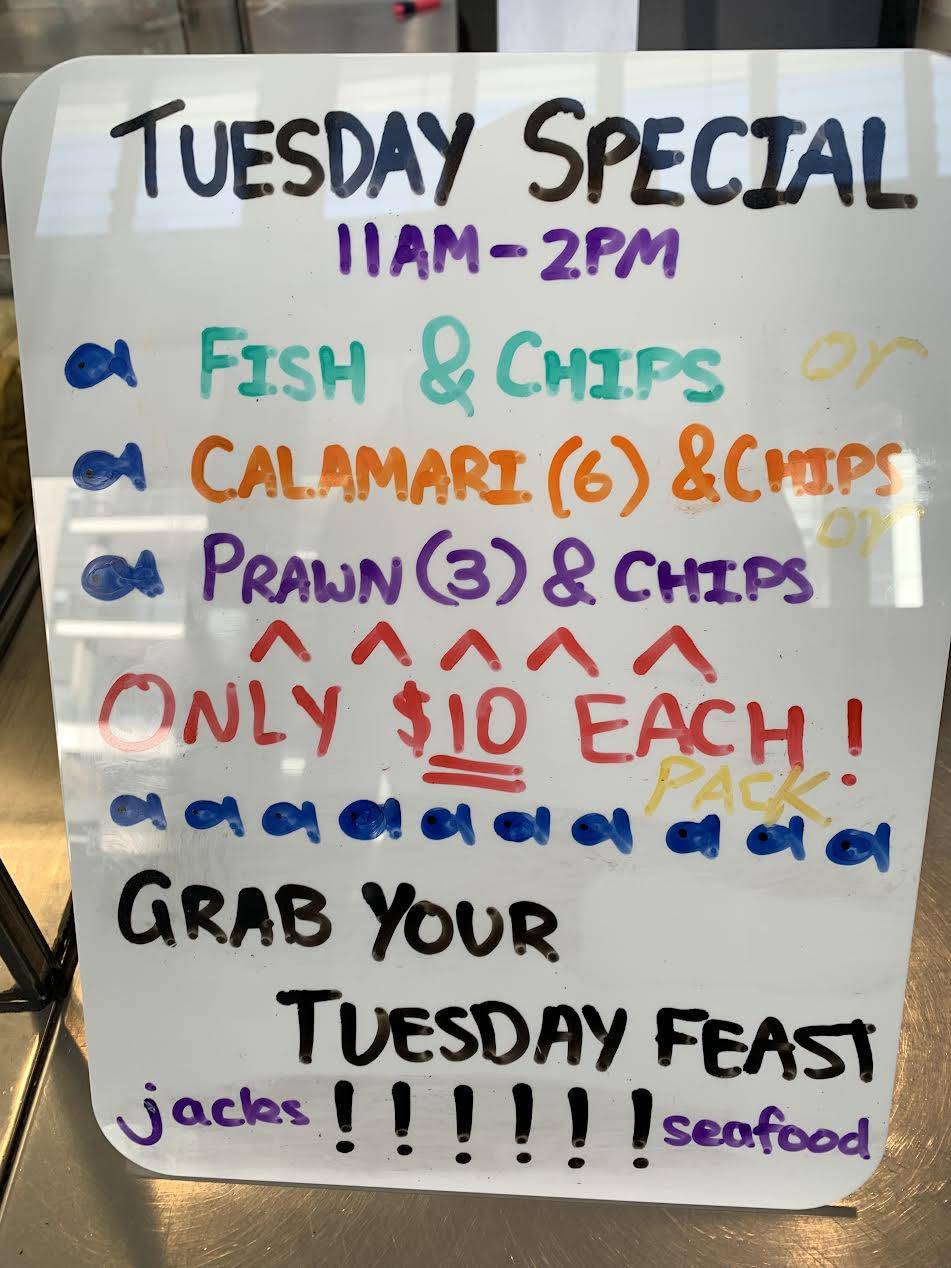 TUESDAY SPECIAL
11AM-2PM
FISH & CHIPS or
CALAMARI (6) & CHIPS
or
PRAWN (3) & CHIPS
ONLY $10 EACH!
PACK
GRAB YOUR
TUESDAY FEAST
jacks !!!!!! seafood